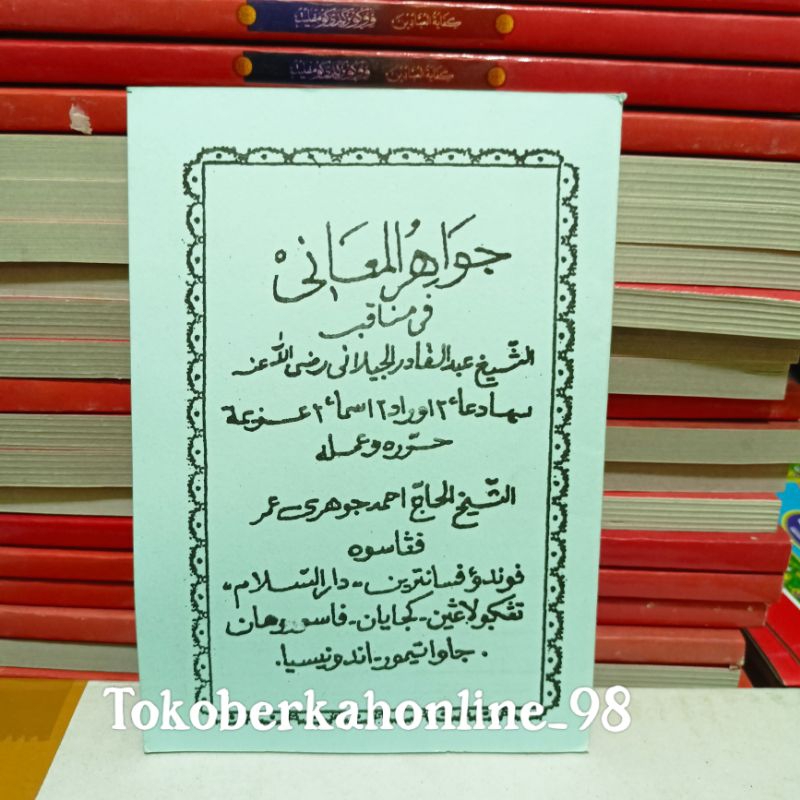 كفاية العابدين
كفاية العابدين
جَوَاهِرُ الْمَعَانِىْ
فى مناقب
الشّيخ عبدالقادر الجيلانى رضى الله عنه
بهادعائ٢ اوراد٢ اسمائ٢ عزيمة
حرّره وعمله
الشّيخ الحاجّ احمد جوهرى عمر
فڠاسوه
فوندؤ فسانترين -،، دارالسّلام ،،
تڠكولاڠين - كجايان - فاسوروهان
. جاوا تيمور - اندونيسيا .
Tokoberkahonline_98